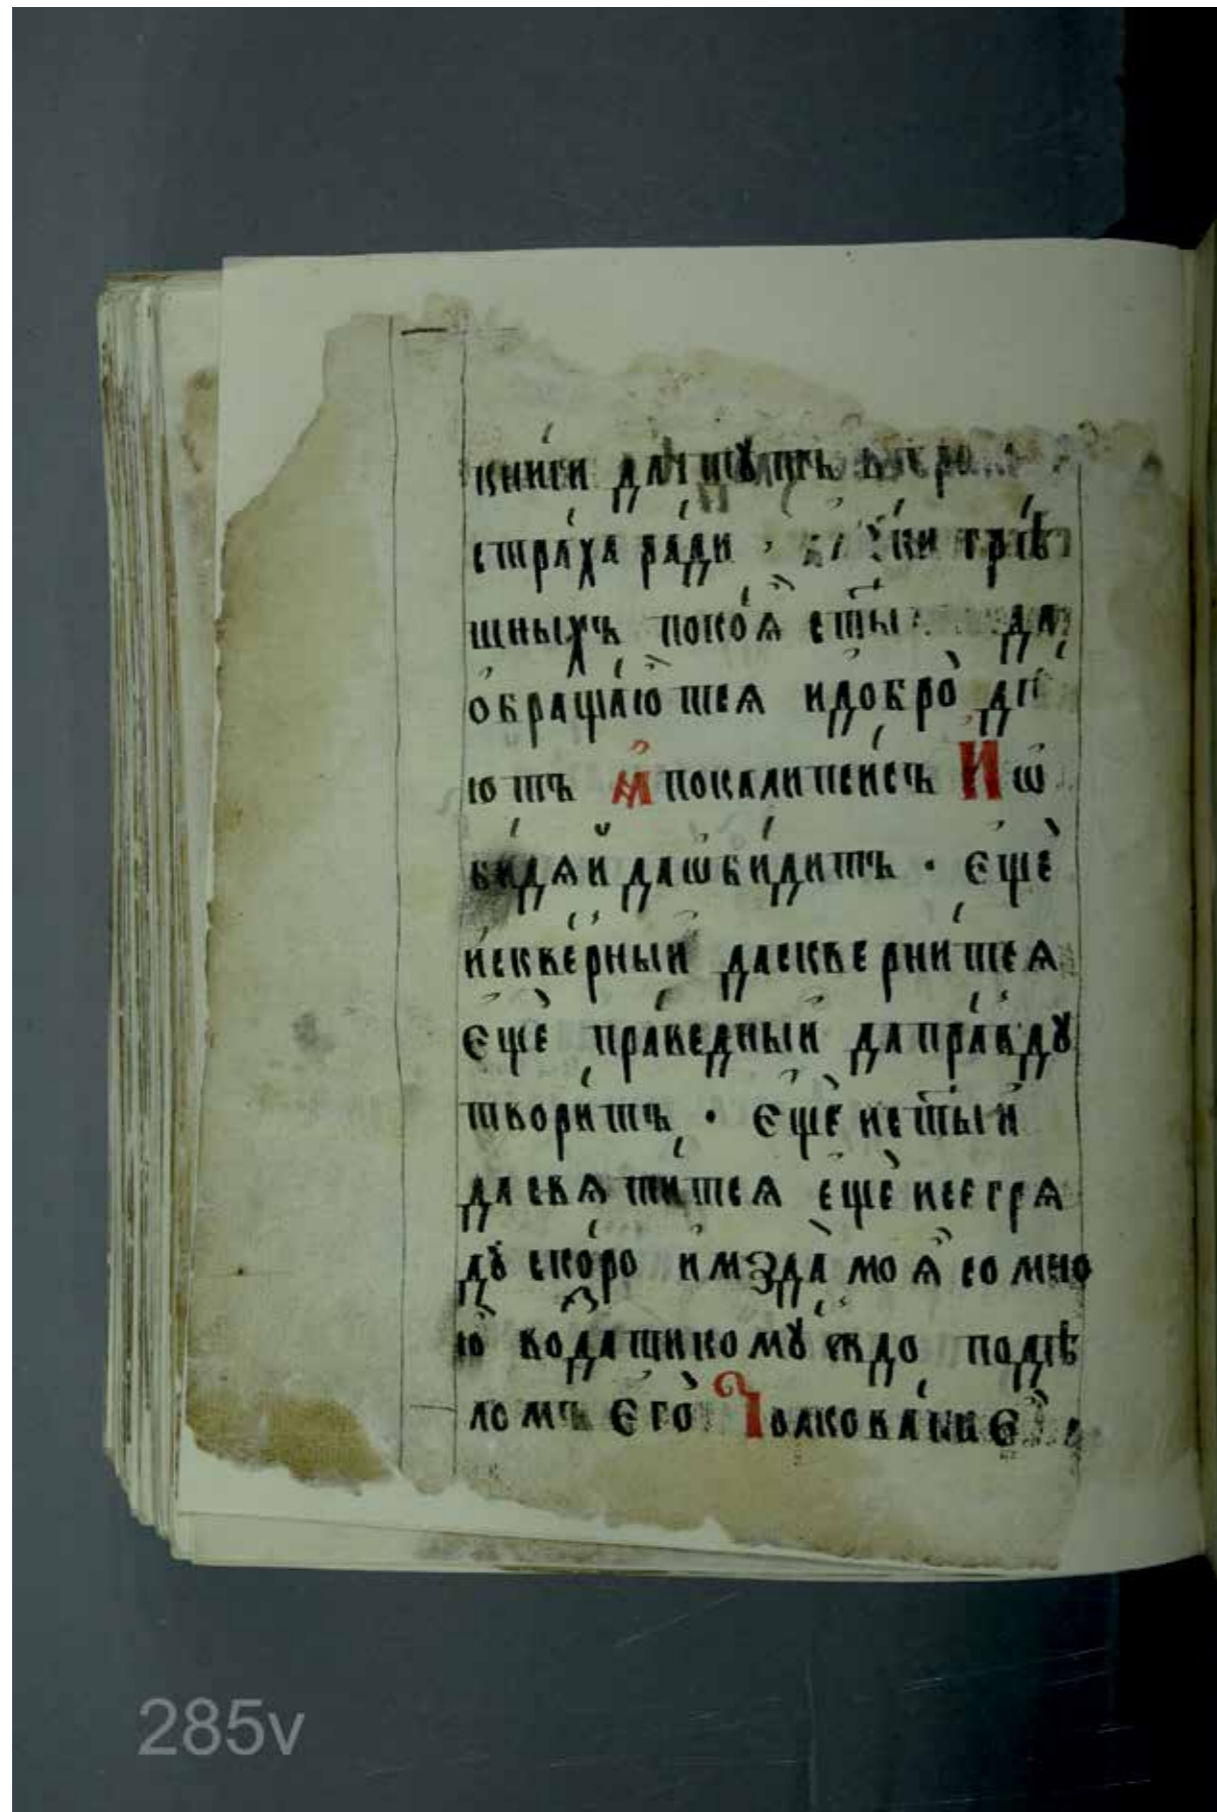 книги да
стра́ха ра́ди · грѣ
шныхъ поко́ѧ ст҃ы да
ѡбраща́ютсѧ и добро̀
ютъ А҆покали́псисъ И ѡ
би́дѧй да ѡби́дитъ · є҆щѐ
и скве́рный да скверни́тсѧ
є҆щѐ пра́ведный да пра́вдꙋ
твори́тъ · є҆щѐ и ст҃ы́й
да свѧти́тсѧ є҆щѐ и се грѧ
дꙋ̀ ско́ро и мзда̀ моѧ̀ со мно
ю возда́ти комꙋ́ждо по дѣ
ломъ є҆гѡ̀ Толкова́ние
285v